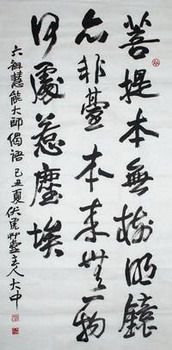 菩提本無樹明鏡
亦非臺本來無一物
何處惹塵埃
六祖慧能大師偈語 己丑夏 主人大中